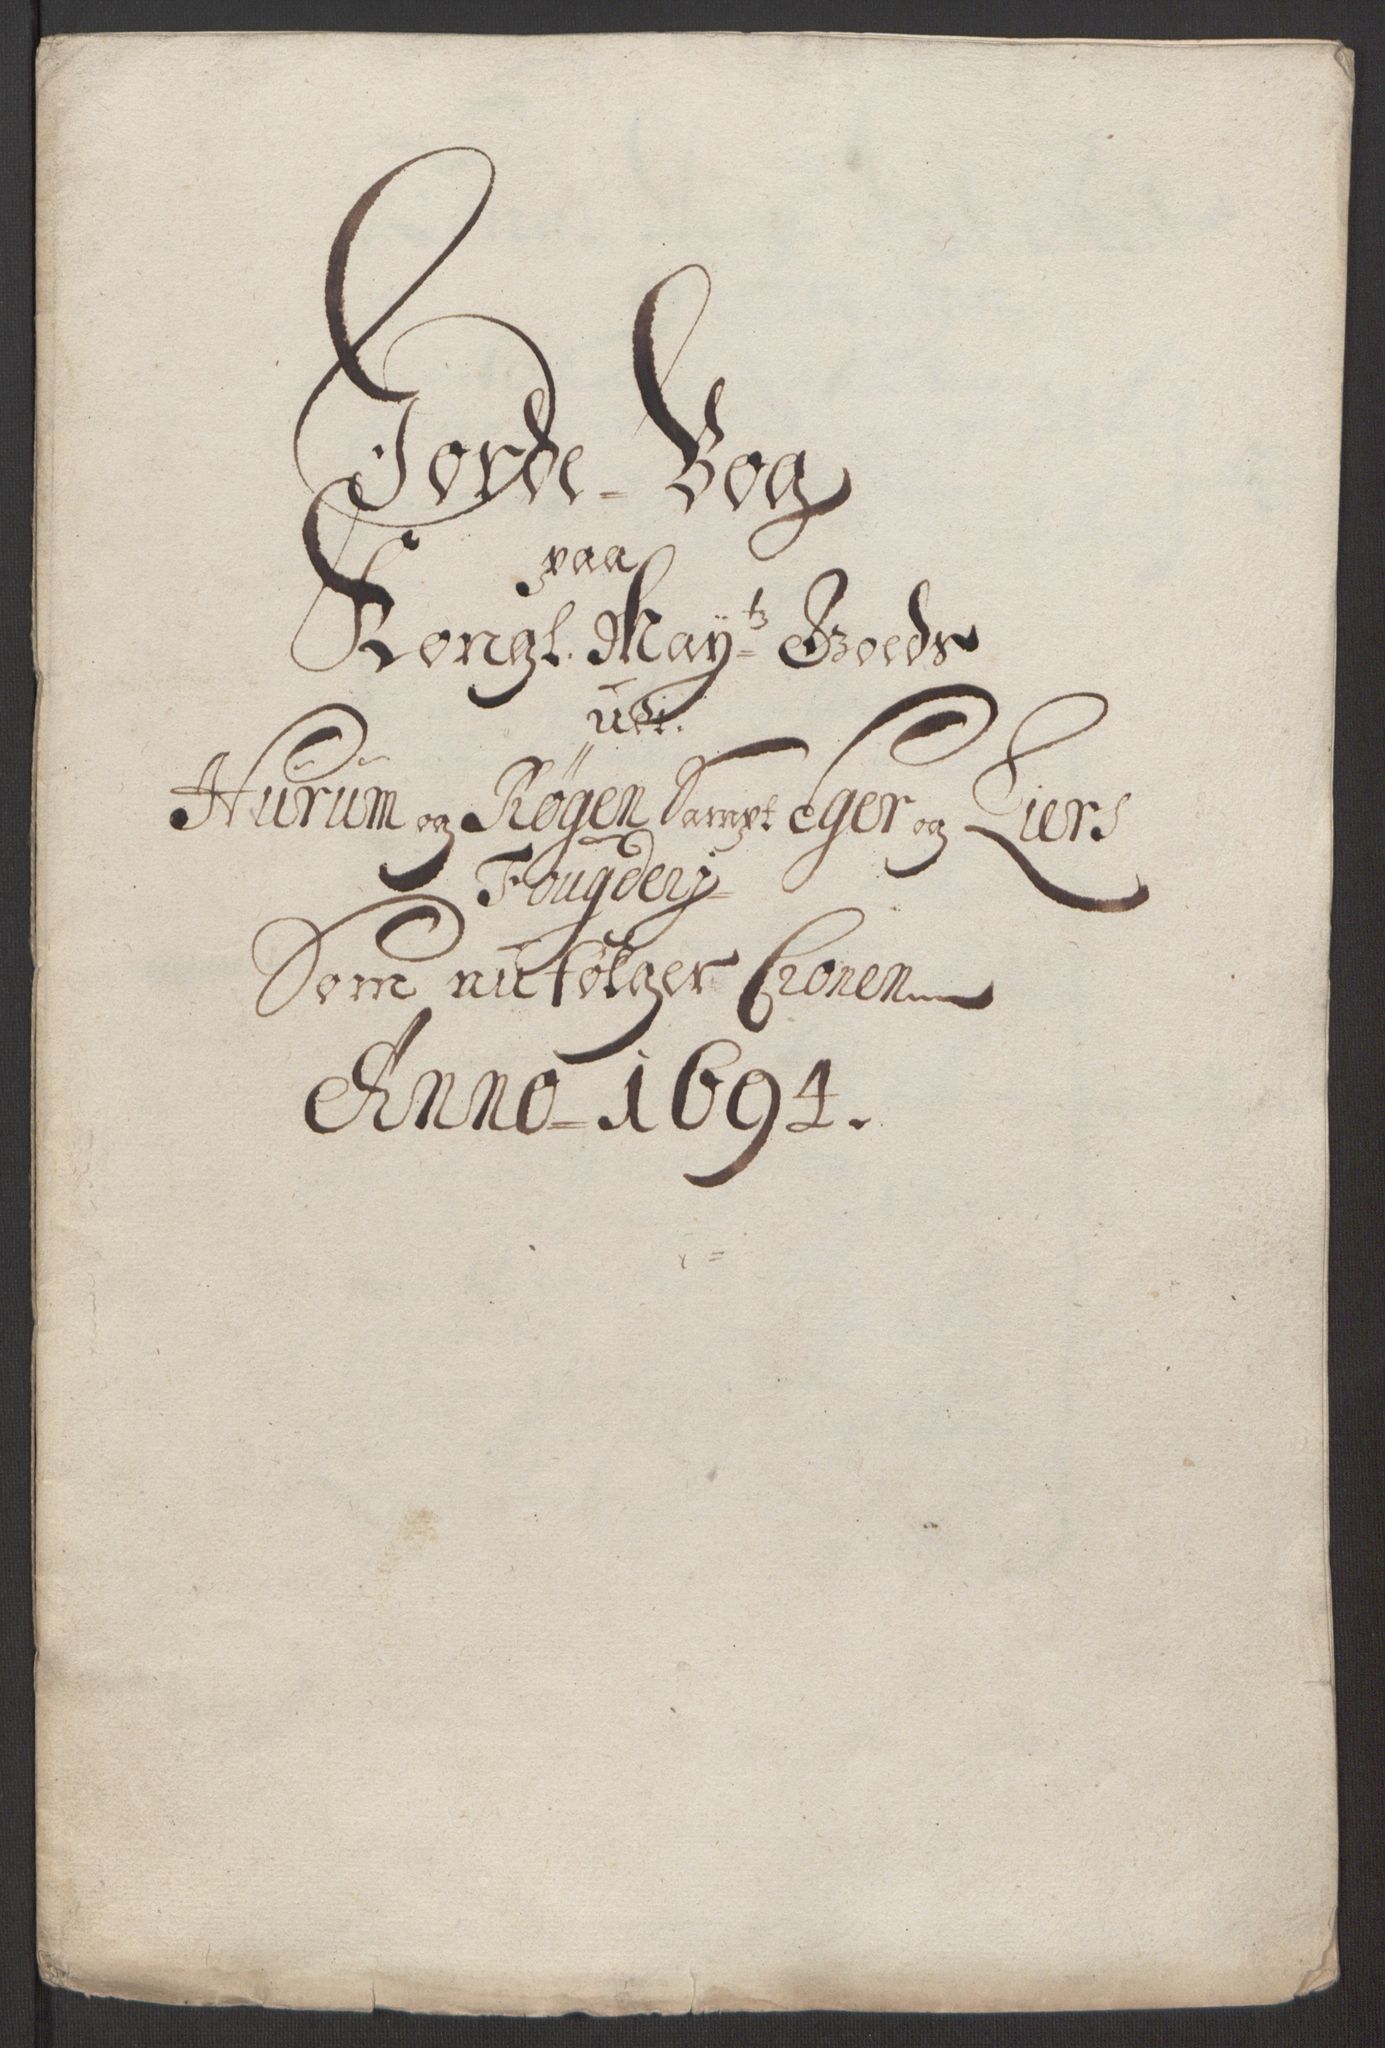 Jorde-Bog
paa
Kongl. May.tz Goeds
udi.
Hurum og Røgen Sampt Eger og Liers
Fougderj
Som nu følger Cronen
Anno 1694.